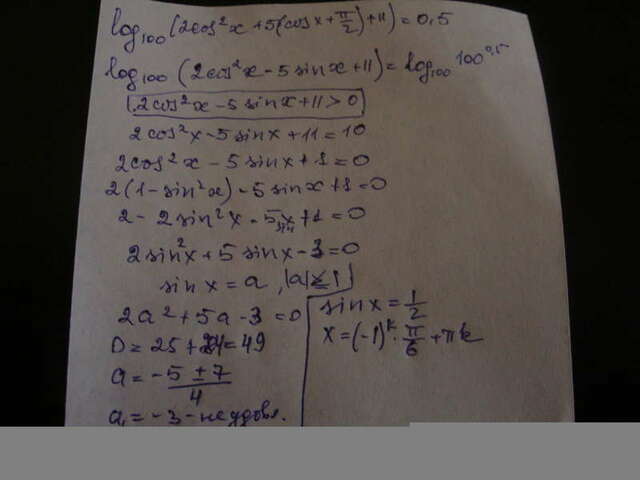 log₁₀₀(2cos²x+5(cosx+π/2)+11)=0,5
log₁₀₀(2cos²x-5sinx+11)=log₁₀₀100^0,5
2cos²x-5sinx+11>0
2cos²x-5sinx+11=10
2cos²x-5sinx+1=0
2(1-sin²x)-5sinx+1=0
2-2sin²x-5sinx+1=0
2sin²x+5sinx-3=0
sinx=a, |a|≤1
2a²+5a-3=0
D=25+24=49
a=(-5±7)/4
a₁=-3-неудовл.
sinx=1/2
x=(-1)ᵏ·π/6+πk